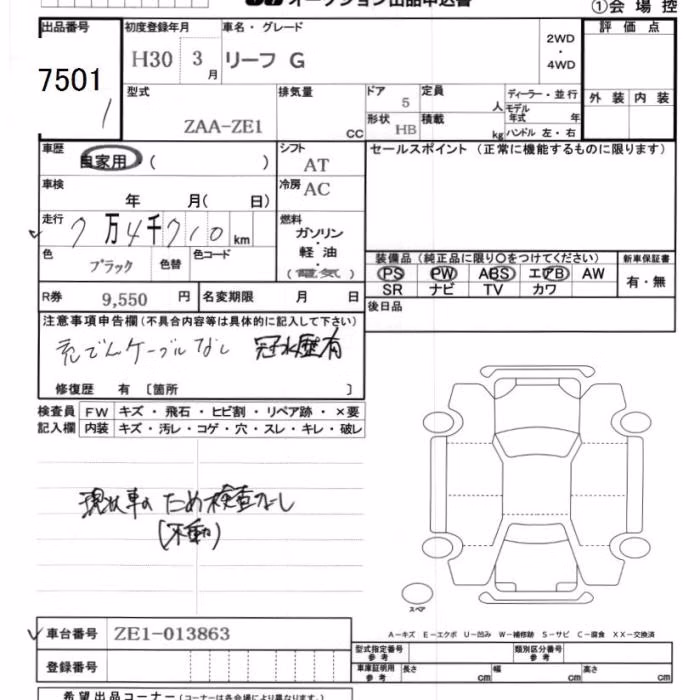 オークション出品申込書
①会場控
出品番号
7501
1
初度登録年月
H30 3月
車名・グレード
リーフ G
2WD
・
4WD
評価点
外装 内装
型式
ZAA-ZE1
排気量
cc
ドア
5
定員
人
ディーラー・並行
モデル年式 年
形状
HB
積載
kg
ハンドル 左・右
車歴
自家用 ( )
シフト
AT
セールスポイント (正常に機能するものに限ります)
車検
年 月( 日)
冷房
AC
走行
7万4千710km
燃料
ガソリン
・
軽油
(電気)
色
ブラック
色替
色コード
装備品 (純正品に限り○をつけてください)
新車保証書
PS PW ABS エアB AW
SR ナビ TV カワ
有・無
R券
9,550 円
名変期限 月 日
後日品
注意事項申告欄 (不具合内容等は具体的に記入して下さい)
充でんケーブルなし 冠水歴有
修復歴 有 〔箇所 〕
検査員 FW キズ・飛石・ヒビ割・リペア跡・×要
記入欄 内装 キズ・汚レ・コゲ・穴・スレ・キレ・破レ
現状車の ため検査なし
(不動)
スペア
A-キズ E-エクボ U-凹み W-補修跡 S-サビ C-腐食 XX-交換済
車台番号 ZE1-013863
登録番号
型式指定番号
参考
類別区分番号
参考
車庫証明用
参考
長さ cm 幅 cm 高さ cm
希望出品コーナー (コーナーは各会場により異なります。)